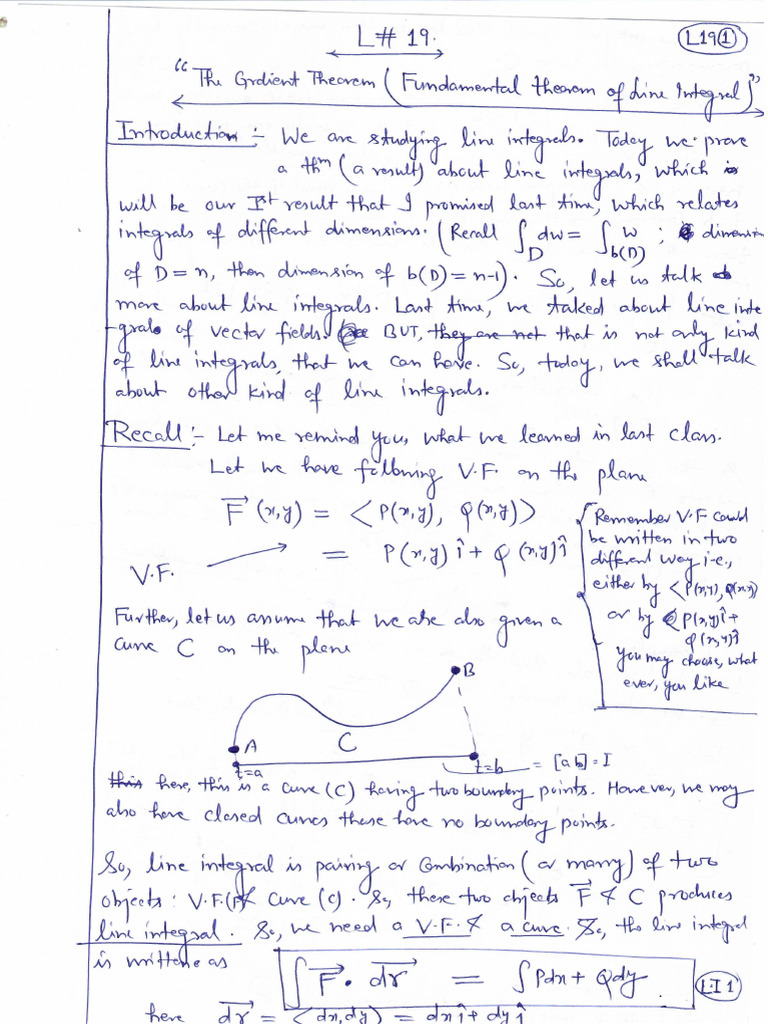 L# 19.
L19①
"The Grdient Theorem (Fundamental theorem of Line Integral)"
Introduction :- We are studying line integrals. Today we prove
a thm (a result) about line integrals, which is
will be our Ist result that I promised last time, which relates
integrals of different dimensions. (Recall ∫_D dw = ∫_b(D) w ; dimension
of D = n, then dimension of b(D) = n-1). So, let us talk
more about line integrals. Last time, we taked about line inte
-grals of vector fields. BUT, they are not that is not only kind
of line integrals, that we can have. So, today, we shall talk
about other kind of line integrals.
Recall :- Let me remind you, what we learned in last class.
Let we have following V.F. on the plane
F⃗ (x,y) = <P(x,y), Q(x,y)>
= P(x,y) î + Q(x,y) ĵ
V.F.
Remember V.F could
be written in two
different way i-e.,
either by <P(x,y), Q(x,y)>
or by P(x,y)î +
Q(x,y)ĵ
you may choose, what
ever, you like
Further, let us assume that we are also given a
curve C on the plane
B
A
C
t=a
t=b
= [a b] = I
this here, this is a curve (C) having two boundary points. However, we may
also have closed curves these have no boundary points.
So, line integral is pairing or Combination (or marry) of two
objects : V.F.(F) & curve (c). So, these two objects F⃗ & C produces
line integral. So, we need a V.F. & a curve. So, the line integral
is written as
∫ F⃗ . dr⃗ = ∫ Pdx + Qdy
L.I 1
here dr⃗ = <dx, dy> = dx î + dy ĵ